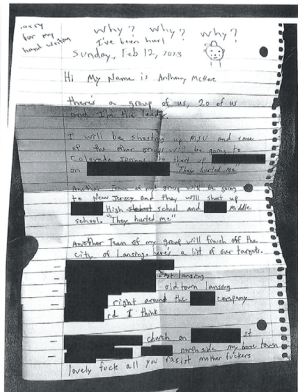 sorry
for my
hand written
why? why? why?
I've been hurt
Sunday, Feb 12, 2023
Hi My Name is Anthony McRae
there's a group of us, 20 of us
and I'm the leader
I will be shooting up MSU and some
of the other group will be going to
Colorado Springs to shoot up
on They hurted me
Another team of my group will be going
to New Jersey and they will shoot up
High school and Middle
school. "They hurted me"
Another Team of my group will finish off the
city of Lansing. here's a list of our targets.
east lansing
old town lansing
right around the company
rd I think
church on st
northside my home town
lovely fuck all you racist mother fuckers